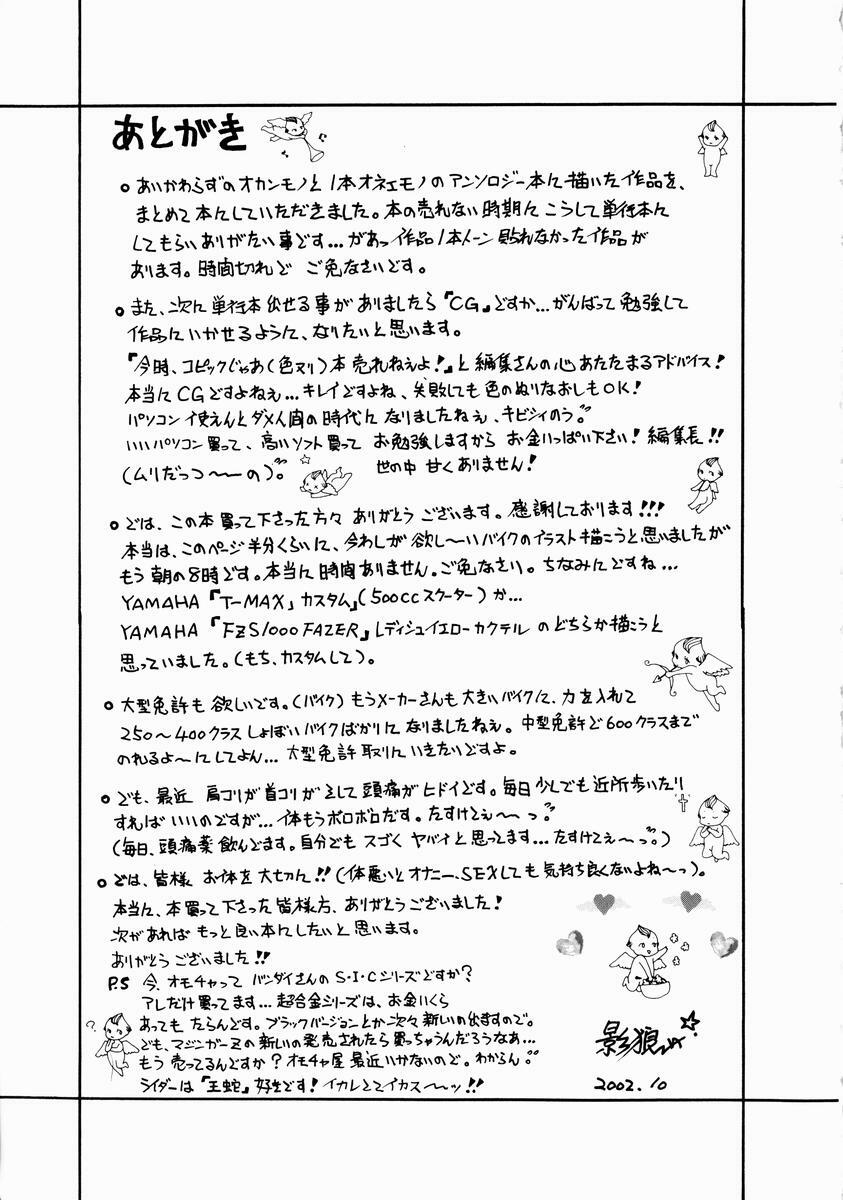 あとがき
○ あいかわらずのオカンモノと1本オネエモノのアンソロジー本に描いた作品を、
まとめて本にしていただきました。本の売れない時期にこうして単行本に
してもらいありがたい事です…があっ作品1本トーン貼れなかった作品が
あります。時間切れで ご免なさいです。
○ また、次に単行本出せる事がありましたら『CG』ですか…がんばって勉強して
作品にいかせるように、なりたいと思います。
『今時、コピックじゃあ(色ヌリ)本売れねぇよ!』と編集さんの心あたたまるアドバイス!
本当にCGですよねぇ…キレイですよね、失敗しても色のぬりなおしもOK!
パソコン使えんとダメ人間の時代になりましたねぇ、キビシィのう。
いいパソコン買って、高いソフト買って お勉強しますから お金いっぱい下さい!編集長!!
(ムリだっつ〜〜の)。 世の中甘くありません!
○ では、この本買って下さった方々ありがとうございます。感謝しております!!!
本当は、このページ半分くらいに、今わしが欲し〜いバイクのイラスト描こうと思いましたが
もう朝の8時です。本当に時間ありません。ご免なさい。ちなみにですね…
YAMAHA『T-MAX』カスタム(500ccスクーター)か…
YAMAHA『FZS1000 FAZER』レディシュイエローカクテル のどちらか描こうと
思っていました。(もち、カスタムして)。
○ 大型免許も欲しいです。(バイク)もうメーカーさんも大きいバイクに、力を入れて
250〜400クラスしょぼいバイクばかりになりましたねぇ。中型免許で600クラスまで
のれるよ〜にしてよん…大型免許取りにいきたいですよ。
○ でも、最近 肩コリが首コリがそして頭痛がヒドイです。毎日少しでも近所歩いたり
すればいいのですが…体もうボロボロだす。たすけてぇ〜〜っ。
(毎日、頭痛薬飲んでます。自分でもスゴくヤバイと思ってます…たすけてぇ〜っ。)
○ では、皆様 お体を大切に!!(体悪いとオナニー、SEXしても気持ち良くないよね〜っ)。
本当に、本買って下さった皆様方、ありがとうございました!
次があればもっと良い本にしたいと思います。
ありがとうございました!!
P.S 今、オモチャって バンダイさんのS・I・Cシリーズですか?
アレだけ買ってます…超合金シリーズは、お金いくら
あってもたらんです。ブラックバージョンとか次々新しいの出ますので。
でも、マジンガーZの新しいの発売されたら買っちゃうんだろうなあ…
もう売ってるんですか?オモチャ屋最近いかないので。わからん。
ライダーは『王蛇』好きです!イカレててイカス〜〜ッ!!
?
影狼
2002.10